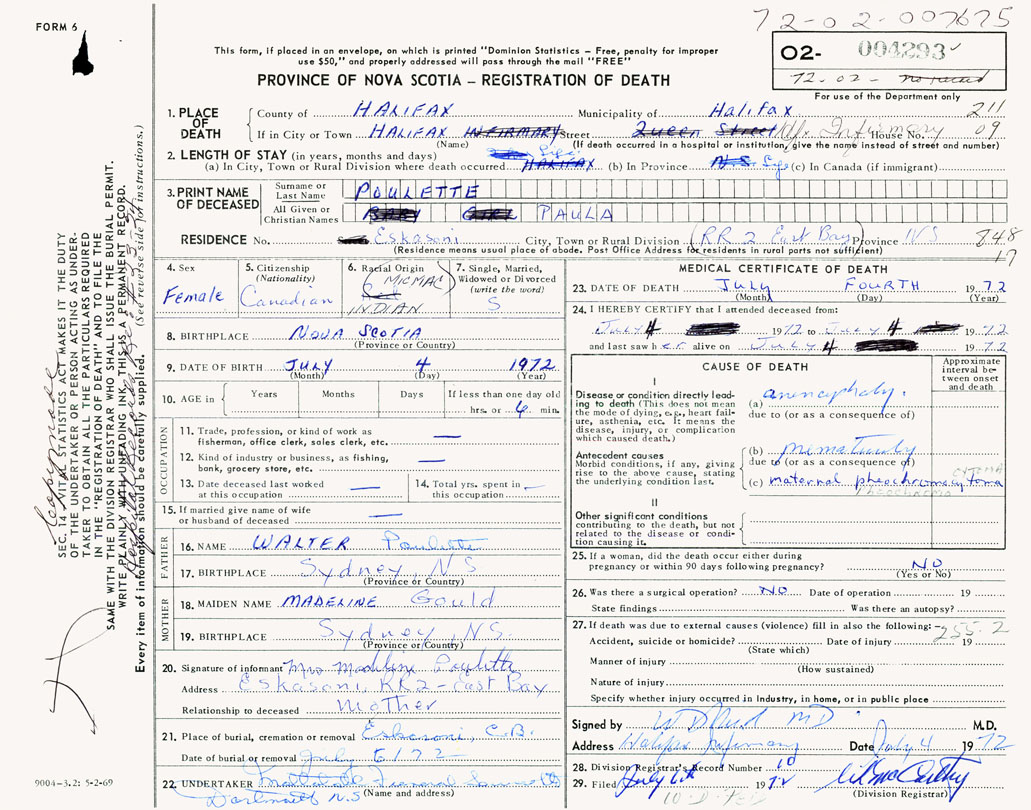 72-02-007675
FORM 6
02- 004293
72-02-
For use of the Department only
This form, if placed in an envelope, on which is printed "Dominion Statistics – Free, penalty for improper
use $50," and properly addressed will pass through the mail "FREE"
PROVINCE OF NOVA SCOTIA – REGISTRATION OF DEATH
1. PLACE OF DEATH County of HALIFAX Municipality of Halifax 211
If in City or Town HALIFAX INFIRMARY Street Queen Street Hfx Infirmary House No. 09
(Name) (If death occurred in a hospital or institution, give the name instead of street and number)
2. LENGTH OF STAY (in years, months and days) Life
(a) In City, Town or Rural Division where death occurred HALIFAX (b) In Province N.S. Life (c) In Canada (if immigrant)
3. PRINT NAME OF DECEASED Surname or Last Name POULETTE
All Given or Christian Names BABY GIRL PAULA
RESIDENCE No. Eskasoni City, Town or Rural Division RR 2 East Bay Province NS 848
(Residence means usual place of abode. Post Office Address for residents in rural parts not sufficient) 17
4. Sex Female
5. Citizenship (Nationality) Canadian
6. Racial Origin MICMAC INDIAN
7. Single, Married, Widowed or Divorced (write the word) S
8. BIRTHPLACE NOVA SCOTIA
(Province or Country)
9. DATE OF BIRTH JULY 4 1972
(Month) (Day) (Year)
10. AGE in Years Months Days If less than one day old
hrs. or 6 min.
OCCUPATION
11. Trade, profession, or kind of work as
fisherman, office clerk, sales clerk, etc. —
12. Kind of industry or business, as fishing,
bank, grocery store, etc. —
13. Date deceased last worked
at this occupation —
14. Total yrs. spent in
this occupation —
15. If married give name of wife
or husband of deceased —
FATHER
16. NAME WALTER Poulette
17. BIRTHPLACE Sydney, NS
(Province or Country)
MOTHER
18. MAIDEN NAME MADELINE Gould
19. BIRTHPLACE Sydney, NS.
(Province or Country)
20. Signature of informant Mrs Madeline Poulette
Address Eskasoni, RR2 - East Bay
Relationship to deceased Mother
21. Place of burial, cremation or removal Eskasoni, C.B.
Date of burial or removal July 6/72
22. UNDERTAKER Funeral Service
(Name and address)
Dartmouth N.S
MEDICAL CERTIFICATE OF DEATH
23. DATE OF DEATH July FOURTH 1972
(Month) (Day) (Year)
24. I HEREBY CERTIFY that I attended deceased from:
July 4 1972 to July 4 1972
and last saw her alive on July 4 1972
CAUSE OF DEATH
Approximate interval between onset and death
I
Disease or condition directly leading to death (This does not mean the mode of dying, e.g., heart failure, asthenia, etc. It means the disease, injury, or complication which caused death.)
(a) anencephaly.
due to (or as a consequence of)
Antecedent causes
Morbid conditions, if any, giving rise to the above cause, stating the underlying condition last.
(b) prematurity
due to (or as a consequence of)
(c) maternal pheochromocytoma
PHEOCHROMO CYTOMA
II
Other significant conditions
contributing to the death, but not related to the disease or condition causing it.
25. If a woman, did the death occur either during
pregnancy or within 90 days following pregnancy? NO
(Yes or No)
26. Was there a surgical operation? NO Date of operation 19
State findings Was there an autopsy?
27. If death was due to external causes (violence) fill in also the following: 255.2
Accident, suicide or homicide? Date of injury 19
(State which)
Manner of injury
(How sustained)
Nature of injury
Specify whether injury occurred in industry, in home, or in public place
Signed by M.D.
Address Halifax Infirmary Date July 4 1972
28. Division Registrar's Record Number 10
29. Filed July 6th 1972
(Division Registrar)
SEC. 14 VITAL STATISTICS ACT MAKES IT THE DUTY
OF THE UNDERTAKER OR PERSON ACTING AS UNDERTAKER
TO OBTAIN ALL THE PARTICULARS REQUIRED
IN THE "REGISTRATION OF DEATH" AND TO FILE THE
SAME WITH THE DIVISION REGISTRAR WHO SHALL ISSUE THE BURIAL PERMIT.
WRITE PLAINLY WITH UNFADING INK, THIS IS A PERMANENT RECORD.
Every item of information should be carefully supplied. (See reverse side for instructions.)
9004-3.2: 5-2-69